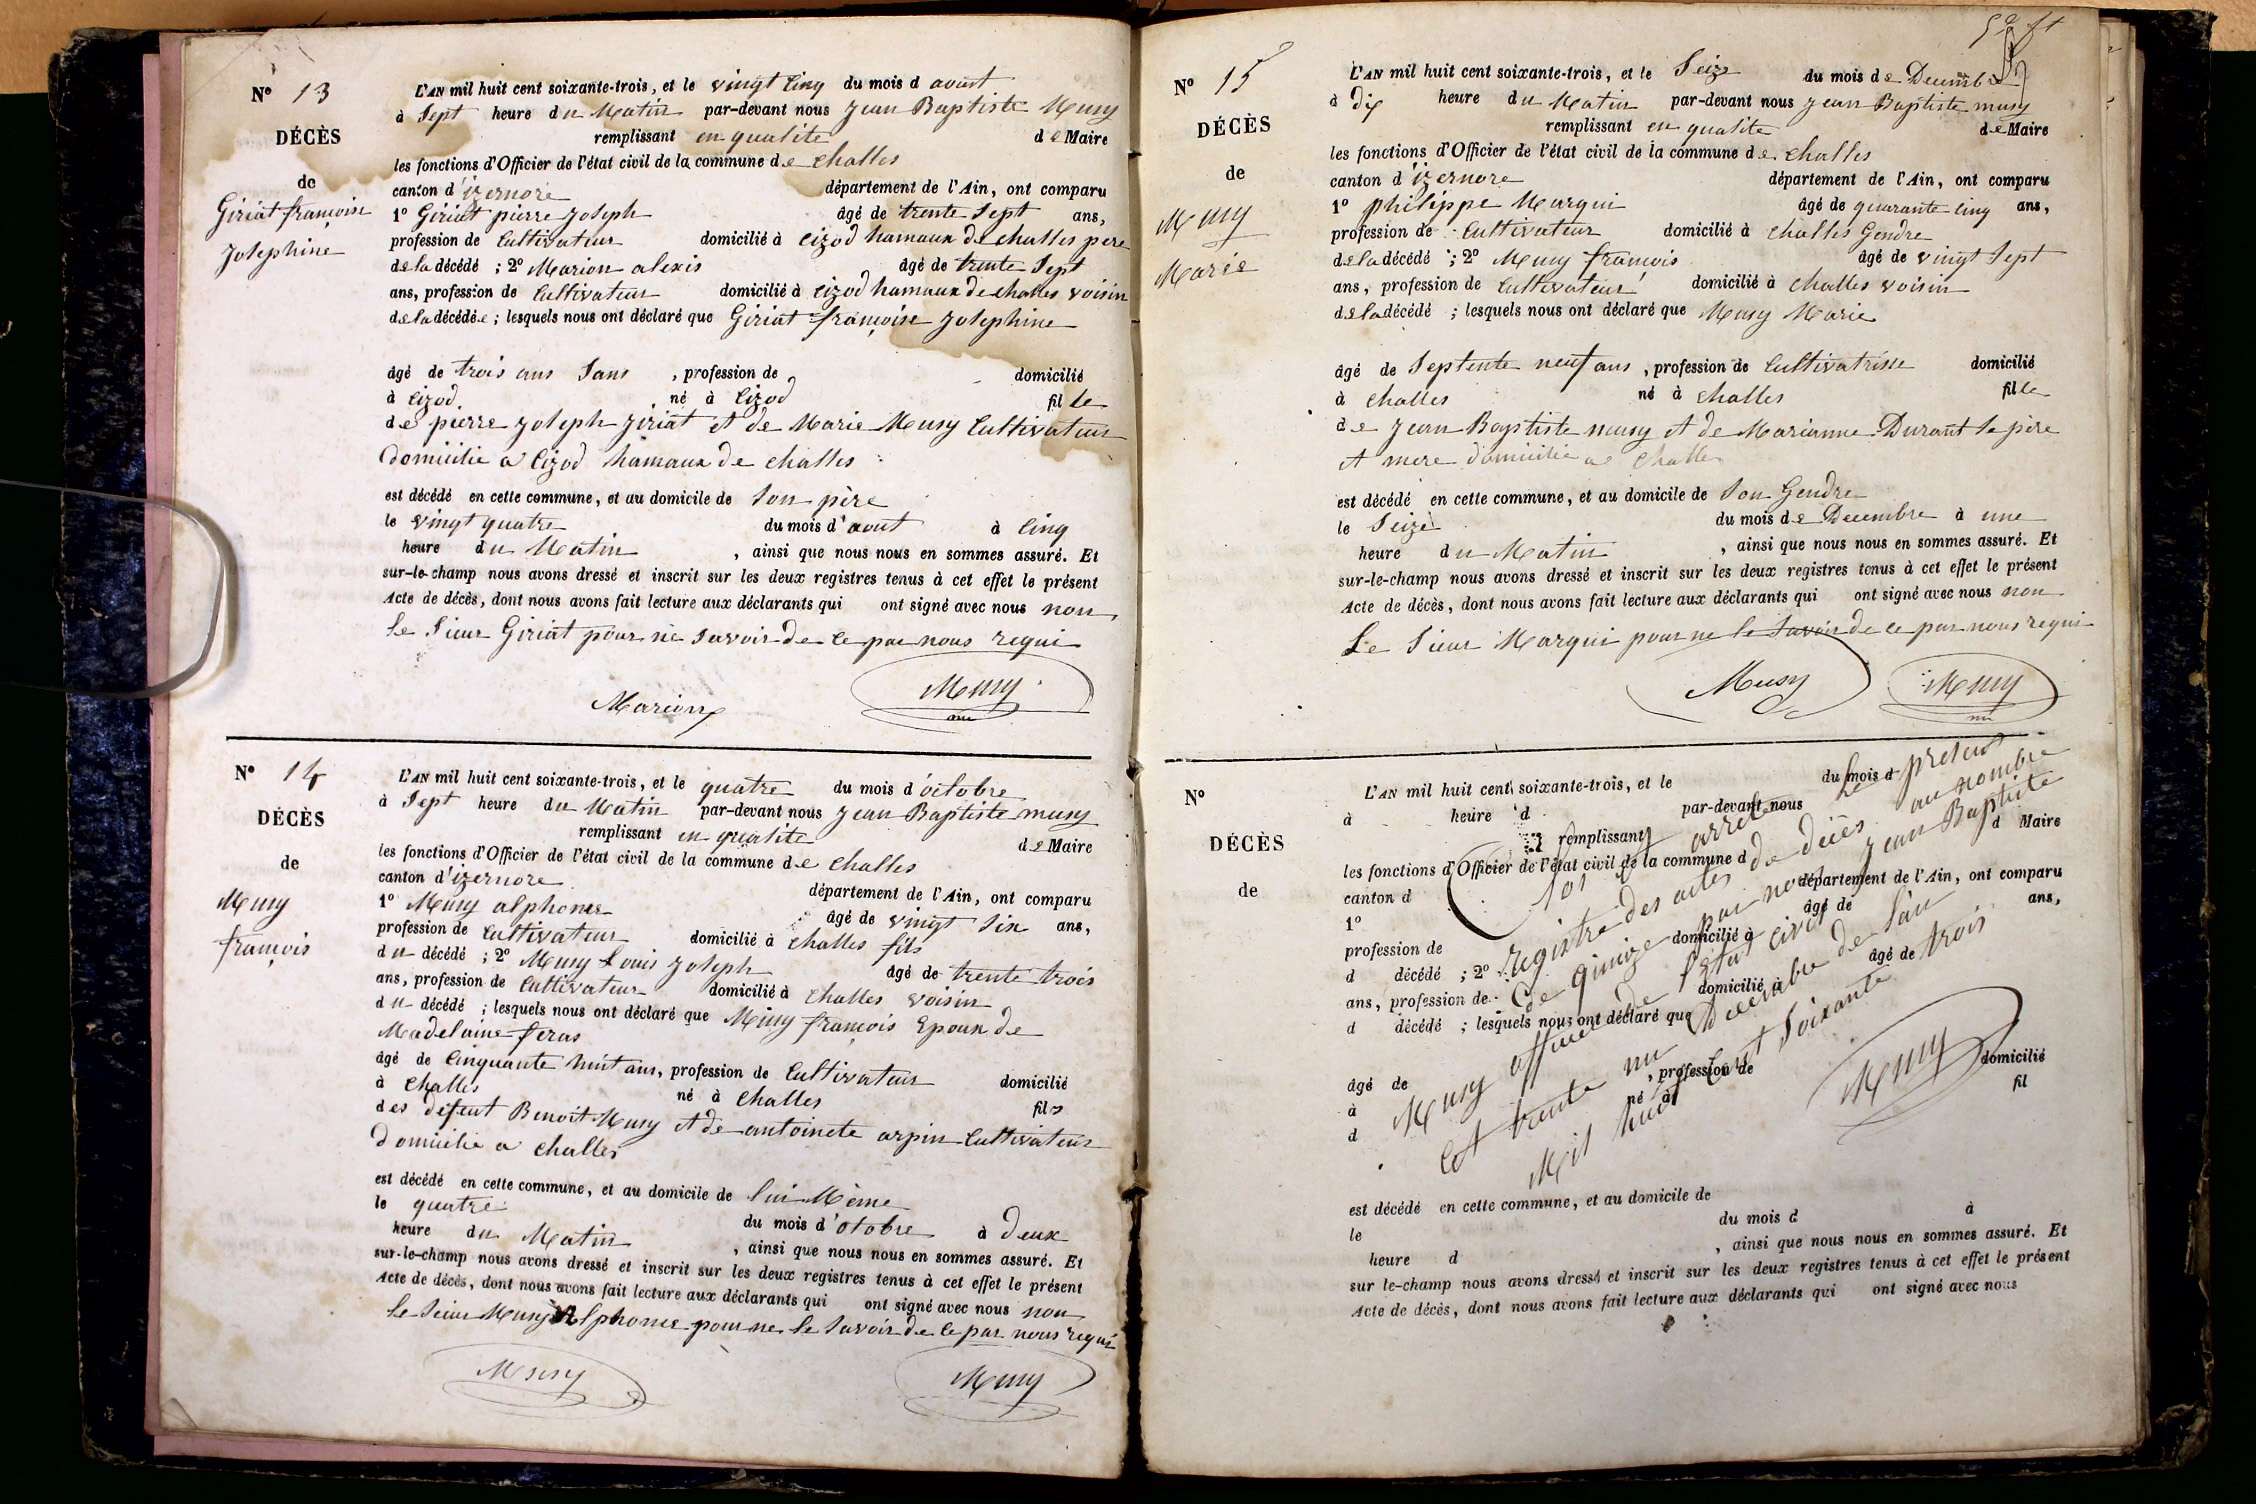 N° 13
DÉCÈS
de
Giriat françoise
Josephine
L'AN mil huit cent soixante-trois, et le vingt cinq du mois d août
à sept heure du Matin par-devant nous Jean Baptiste Musy
remplissant en qualite de Maire
les fonctions d'Officier de l'état civil de la commune de challes
canton d'izernore département de l'Ain, ont comparu
1° Giriat pierre Joseph âgé de trente sept ans,
profession de Cultivateur domicilié à Cizod hamaux de challes pere
de la décédé ; 2° Marion alexis âgé de trente sept
ans, profession de Cultivateur domicilié à Cizod hamaux de challes voisin
de la décédée ; lesquels nous ont déclaré que Giriat françoise Josephine
âgé de trois ans sans , profession de domicilié
à Cizod , né à Cizod fille
de pierre Joseph Giriat et de Marie Musy Cultivateur
domicilie a Cizod hamaux de challes
est décédé en cette commune, et au domicile de son père
le vingt quatre du mois d'aout à cinq
heure du Matin , ainsi que nous nous en sommes assuré. Et
sur-le-champ nous avons dressé et inscrit sur les deux registres tenus à cet effet le présent
Acte de décès, dont nous avons fait lecture aux déclarants qui ont signé avec nous non
le sieur Giriat pour ne savoir de ce par nous requi
Marion Musy
N° 14
DÉCÈS
de
Musy
françois
L'AN mil huit cent soixante-trois, et le quatre du mois d'octobre
à sept heure du Matin par-devant nous Jean Baptiste musy
remplissant en qualite de Maire
les fonctions d'Officier de l'état civil de la commune de challes
canton d'izernore département de l'Ain, ont comparu
1° Musy alphonse âgé de vingt six ans,
profession de Cultivateur domicilié à challes fils
du décédé ; 2° Musy Louis Joseph âgé de trente trois
ans, profession de Cultivateur domicilié à challes voisin
du décédé ; lesquels nous ont déclaré que Musy françois Epoux de
Madelaine feras
âgé de cinquante huit ans, profession de Cultivateur domicilié
à challes né à challes fils
des defeut Benoit Musy et de antoinete arpin Cultivateur
domicilie a challes
est décédé en cette commune, et au domicile de lui Même
le quatre du mois d'otobre à deux
heure du Matin , ainsi que nous nous en sommes assuré. Et
sur-le-champ nous avons dressé et inscrit sur les deux registres tenus à cet effet le présent
Acte de décès, dont nous avons fait lecture aux déclarants qui ont signé avec nous non
le sieur Musy Alphonse pour ne le savoir de ce par nous requi
Musy Musy
N° 15
DÉCÈS
de
Musy
Marie
L'AN mil huit cent soixante-trois, et le seize du mois de Decembre
à dix heure du Matin par-devant nous Jean Baptiste musy
remplissant en qualite de Maire
les fonctions d'Officier de l'état civil de la commune de challes
canton d'izernore département de l'Ain, ont comparu
1° philippe Marqui âgé de quarante cinq ans,
profession de Cultivateur domicilié à challes Gendre
de la décédé ; 2° Musy françois âgé de vingt sept
ans, profession de Cultivateur domicilié à challes voisin
de la décédé ; lesquels nous ont déclaré que Musy Marie
âgé de septente neuf ans , profession de Cultivatrisse domicilié
à challes né à challes fille
de Jean Baptiste musy et de Marianne Durant se père
et mere domicilie a challe
est décédé en cette commune, et au domicile de son Gendre
le seize du mois de Decembre à une
heure du Matin , ainsi que nous nous en sommes assuré. Et
sur-le-champ nous avons dressé et inscrit sur les deux registres tenus à cet effet le présent
Acte de décès, dont nous avons fait lecture aux déclarants qui ont signé avec nous non
Le sieur Marqui pour ne le savoir de ce par nous requi
Musy Musy
N°
DÉCÈS
de
L'AN mil huit cent soixante-trois, et le du mois d
à heure d par-devant nous
remplissant d Maire
les fonctions d'Officier de l'état civil de la commune d
canton d département de l'Ain, ont comparu
1° âgé de ans,
profession de domicilié à
d décédé ; 2° âgé de
ans, profession de domicilié à
d décédé ; lesquels nous ont déclaré que
âgé de , profession de domicilié
à né à fil
d
Le present
arreté
registre des actes de décès au nombre
de quinze par nous Jean Baptiste
Musy officier de l'état civil
et trente un Decembre de l'an
Mil huit cent soixante trois
Musy
est décédé en cette commune, et au domicile de
le du mois d à
heure d , ainsi que nous nous en sommes assuré. Et
sur le-champ nous avons dressé et inscrit sur les deux registres tenus à cet effet le présent
Acte de décès, dont nous avons fait lecture aux déclarants qui ont signé avec nous